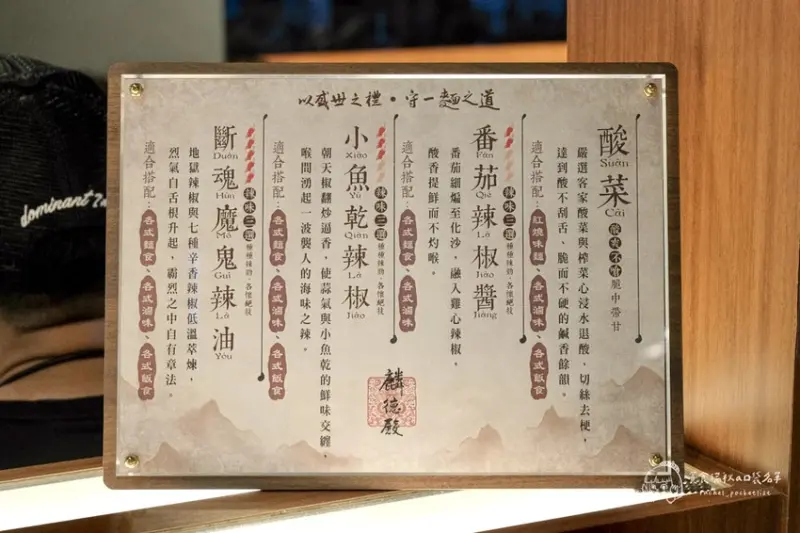 以盛世之禮・守一麵之道
酸菜
Suān Cài
酸爽不嗆 脆中帶甘
嚴選客家酸菜與榨菜心浸水退酸，切絲去梗，
達到酸不刮舌、脆而不硬的鹹香餘韻。
適合搭配：紅燒味麵、各式滷味、各式飯食
番茄辣椒醬
Fān Qié Là Jiāo Jiàng
辣味三選
種種辣勁・各懷絕技
番茄細煸至化沙，融入雞心辣椒，
酸香提鮮而不灼喉。
適合搭配：各式麵食、各式滷味
小魚乾辣椒
Xiǎo Yú Qián Là Jiāo
辣味三選
種種辣勁・各懷絕技
朝天椒翻炒逼香，使蒜氣與小魚乾的鮮味交纏，
喉間湧起一波襲人的海味之辣。
適合搭配：各式麵食、各式滷味、各式飯食
斷魂魔鬼辣油
Duàn Hún Mó Guǐ Là Yóu
辣味三選
種種辣勁・各懷絕技
地獄辣椒與七種辛香辣椒低溫萃煉，
烈氣自舌根升起，霸烈之中自有章法。
適合搭配：各式麵食、各式滷味、各式飯食
麟德殿
dominant